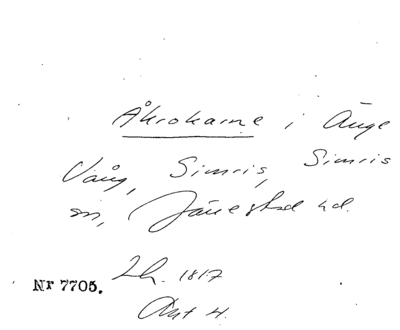 Åkrokarne i Änge
Vång, Simris, Simris
sn, Järrestad hd.
Lh. 1817
Nr 7705.
Akt 4.